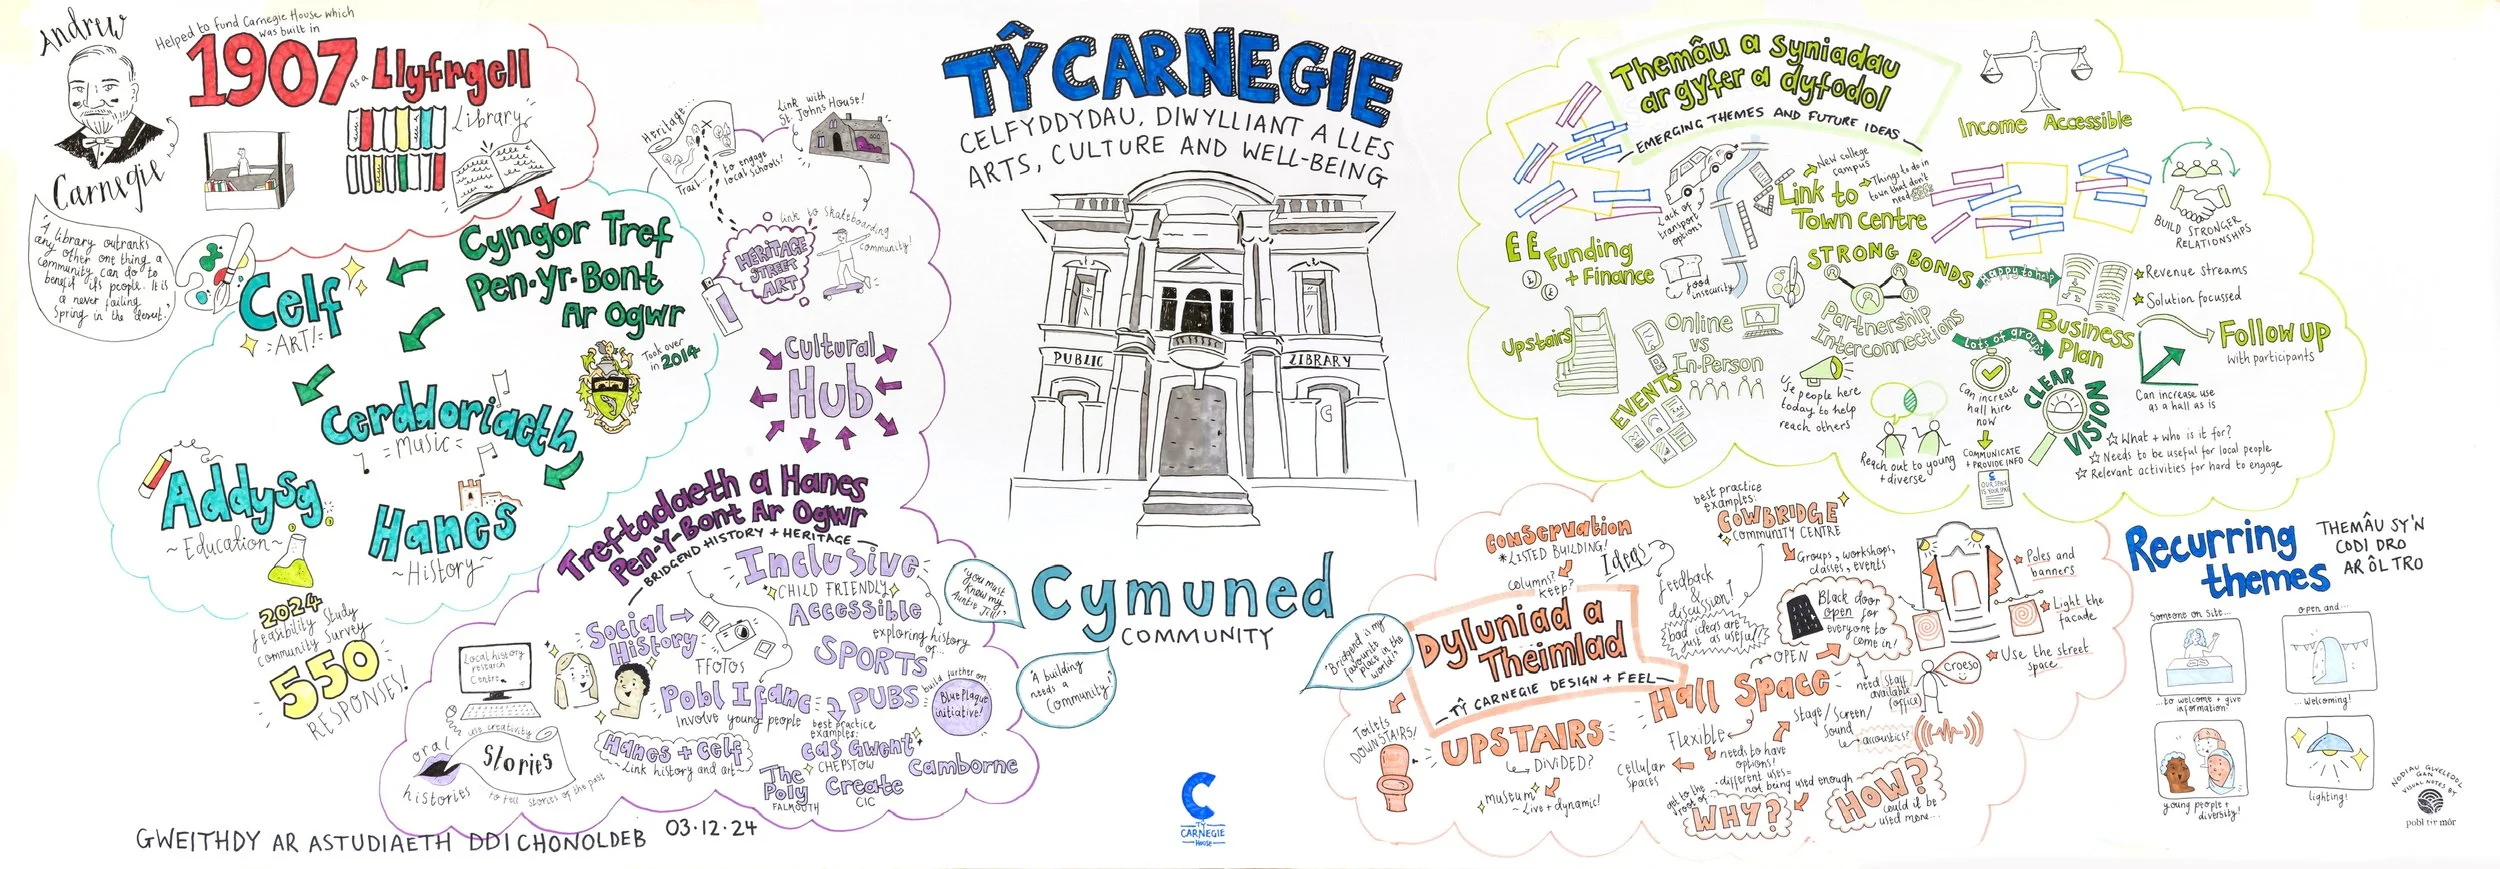 Andrew
Carnegie
Helped to fund Carnegie House which
was built in
1907
as a
Llyfrgell
Library
"A library outranks
any other one thing a
community can do to
benefit its people. It is
a never failing
spring in the desert."
Cyngor Tref
Pen·yr·Bont
Ar Ogwr
Took over
in 2014
Celf
ART!
Cerddoriaeth
=MUSIC=
Addysg
~Education~
Hanes
~History~
2024
feasibility Study
community Survey
550
RESPONSES!
Heritage...
Trail...
to engage
local schools!
Link with
St. Johns House!
link to Skateboarding
community!
HERITAGE
STREET
ART
Cultural
Hub
Treftadaeth a Hanes
Pen-Y-Bont Ar Ogwr
BRIDGEND HISTORY + HERITAGE
Inclusive
CHILD FRIENDLY
Accessible
exploring history
of...
SPORTS
PUBS
build further on
Blue Plaque
initiative!
Social
History
FFOTOS
Local history
research
Centre
Pobl Ifanc
Involve young people
Hanes + Celf
Link history and art
best practice
examples:
Cas Gwent
CHEPSTOW
Camborne
The
Poly
FALMOUTH
Create
CIC
oral
histories
use creativity
Stories
to tell stories of the past
GWEITHDY AR ASTUDIAETH DDICHONOLDEB 03·12·24
TŶ CARNEGIE
CELFYDDYDAU, DIWYLLIANT A LLES
ARTS, CULTURE AND WELL-BEING
PUBLIC
LIBRARY
"you must
know my
Auntie Jill!"
Cymuned
COMMUNITY
"A building
needs a
Community."
"Bridgend is my
favourite
place in the
world!"
C
TŶ
CARNEGIE
HOUSE
Themâu a syniadau
ar gyfer a dyfodol
EMERGING THEMES AND FUTURE IDEAS
Income Accessible
BUILD STRONGER
RELATIONSHIPS
Lack of
transport
options
New college
campus
Link to
Town Centre
Things to do in
town that don't
need
££
Funding
+ Finance
food
insecurity
STRONG BONDS
Partnership
Interconnections
Happy to help
Revenue streams
Solution focussed
Business
Plan
Lots of groups
Follow up
with participants
Upstairs
Online
vs
In-Person
EVENTS
Use people here
today to help
reach others
Reach out to young
+ diverse
Can increase
hall hire
now
COMMUNICATE
+ PROVIDE INFO
OUR SPACE
IS YOUR SPACE
CLEAR
VISION
Can increase use
as a hall as is
What + who is it for?
Needs to be useful for local people
Relevant activities for hard to engage
Conservation
*LISTED BUILDING!
columns?
keep?
Ideas
feedback
&
discussion!
bad ideas are
just as useful!
best practice
examples:
COWBRIDGE
COMMUNITY CENTRE
Groups, workshops,
classes, events
Dyluniad a
Theimlad
TŶ CARNEGIE DESIGN + FEEL
Black door
open for
everyone to
come in!
OPEN
Poles and
banners
Light the
facade
Use the street
space
Croeso
need staff
available
(office)
Toilets
DOWNSTAIRS!
UPSTAIRS
DIVIDED?
museum
~ Live + dynamic!
Hall Space
Flexible
cellular
spaces
needs to have
options!
Stage/Screen/
Sound
acoustics?
different uses =
not being used enough
get to the
root of...
WHY?
HOW?
could it be
used more...
Recurring
themes
THEMÂU SY'N
CODI DRO
AR ÔL TRO
Someone on site...
...to welcome + give
information!
open and...
...Welcoming!
young people +
diversity!
lighting!
NODIAU GWELEDOL
GAN
VISUAL NOTES BY
pobl tir môr